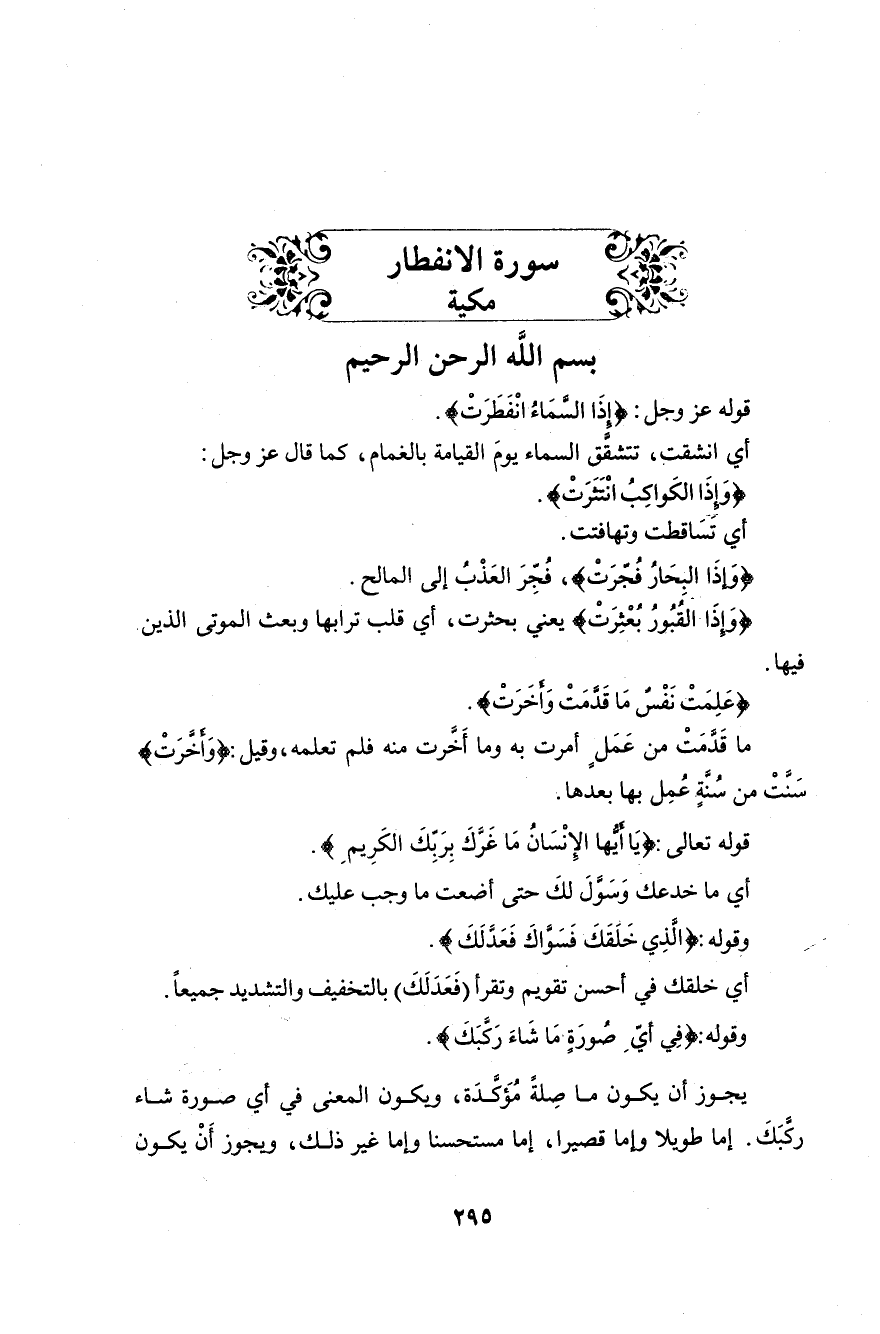 سورة الانفطار
مكية
بسم اللَّه الرحمن الرحيم
قوله عز وجل: ﴿إِذَا السَّمَاءُ انْفَطَرَتْ﴾.
أي انشقت، تتشقَّق السماء يومَ القيامة بالغمام، كما قال عز وجل:
﴿وَإِذَا الكَواكِبُ انْتَثَرَتْ﴾.
أي تَسَاقطت وتهافتت.
﴿وَإذَا البِحَارُ فُجِّرَتْ﴾، فُجِّرَ العَذْبُ إلى المالح.
﴿وَإِذَا القُبُورُ بُعْثِرَتْ﴾ يعني بحثرت، أي قلب ترابها وبعث الموتى الذين
فيها.
﴿عَلِمَتْ نَفْسٌ مَا قَدَّمَتْ وَأَخَرَتْ﴾.
ما قَدَّمَتْ من عَمَلٍ أمرت به وما أَخَّرت منه فلم تعلمه، وقيل: ﴿وَأَخَّرَتْ﴾
سَنَّتْ من سُنَّةٍ عُمِل بها بعدها.
قوله تعالى: ﴿يَا أَيُّها الإِنْسَانُ مَا غَرَّكَ بِرَبِّكَ الكَرِيمِ﴾.
أي ما خدعك وَسَوَّلَ لكَ حتى أضعت ما وجب عليك.
وقوله: ﴿الَّذِي خَلَقَكَ فَسَوَّاكَ فَعَدَّلَكَ﴾.
أي خلقك في أحسن تقويم وتقرأ (فَعَدَلَكَ) بالتخفيف والتشديد جميعاً.
وقوله: ﴿فِي أَيِّ صُورَةٍ مَا شَاءَ رَكَّبَكَ﴾.
يجوز أن يكون ما صِلةً مُؤكَّدَة، ويكون المعنى في أي صورة شاء
ركَّبَكَ. إما طويلا وإما قصيرا، إما مستحسنا وإما غير ذلك، ويجوز أَنْ يكون
٢٩٥